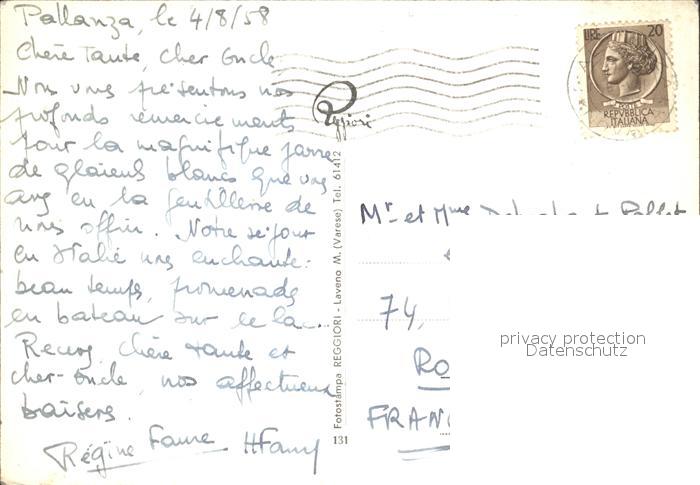 Pallanza, le 4/8/58
Chère Tante, cher Oncle
Nous vous présentons nos
profonds remerciements
pour la magnifique gerbe
de glaïeuls blancs que vous
avez eu la gentillesse de
nous offrir. Notre séjour
en Italie nous enchante:
beau temps, promenade
en bateau sur le lac...
Recevez, chère tante et
cher oncle, nos affectueux
baisers.
Régine Faure HFaure
Reggiori
Fotostampa REGGIORI - Laveno M. (Varese) Tel. 61412
131
LIRE 20
REPVBBLICA
ITALIANA
Mr et Mme
74,
Ro
FRAN
privacy protection
Datenschutz